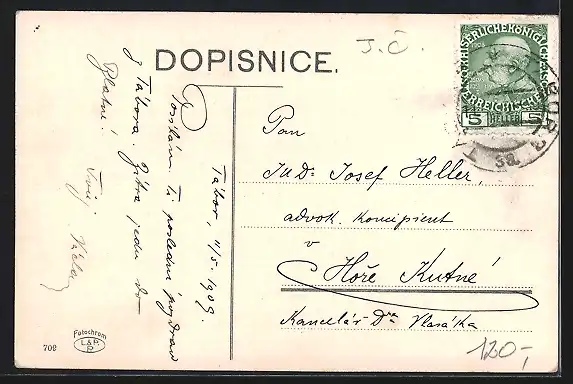 DOPISNICE.
J.Č.
KAISERLICHE KÖNIGLICHE
ÖSTERREICHISCHE
5 HELLER 5
1908
3a
Tábor, 11/5. 1909.
Posílám ti poslední pozdrav
z Tábora. Zítra jedu do
Blatné!
Tvůj
Pan
JUDr Josef Heller,
advok. koncipient
v
Hoře Kutné!
Kancelář Dra
120,-
Fotochrom
709